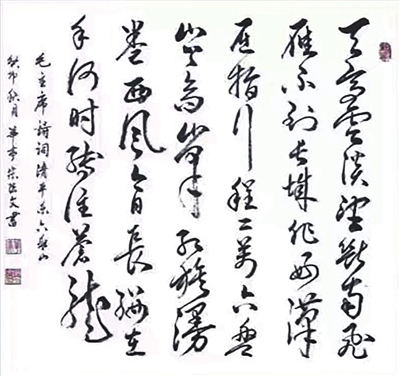 天高雲淡望断南飛
雁不到长城非好漢
屈指行程二萬六盤
山上高峰红旗漫
卷西風今日長缨在
手何时缚住蒼龙
毛主席詩詞清平乐六盘山
癸卯秋月